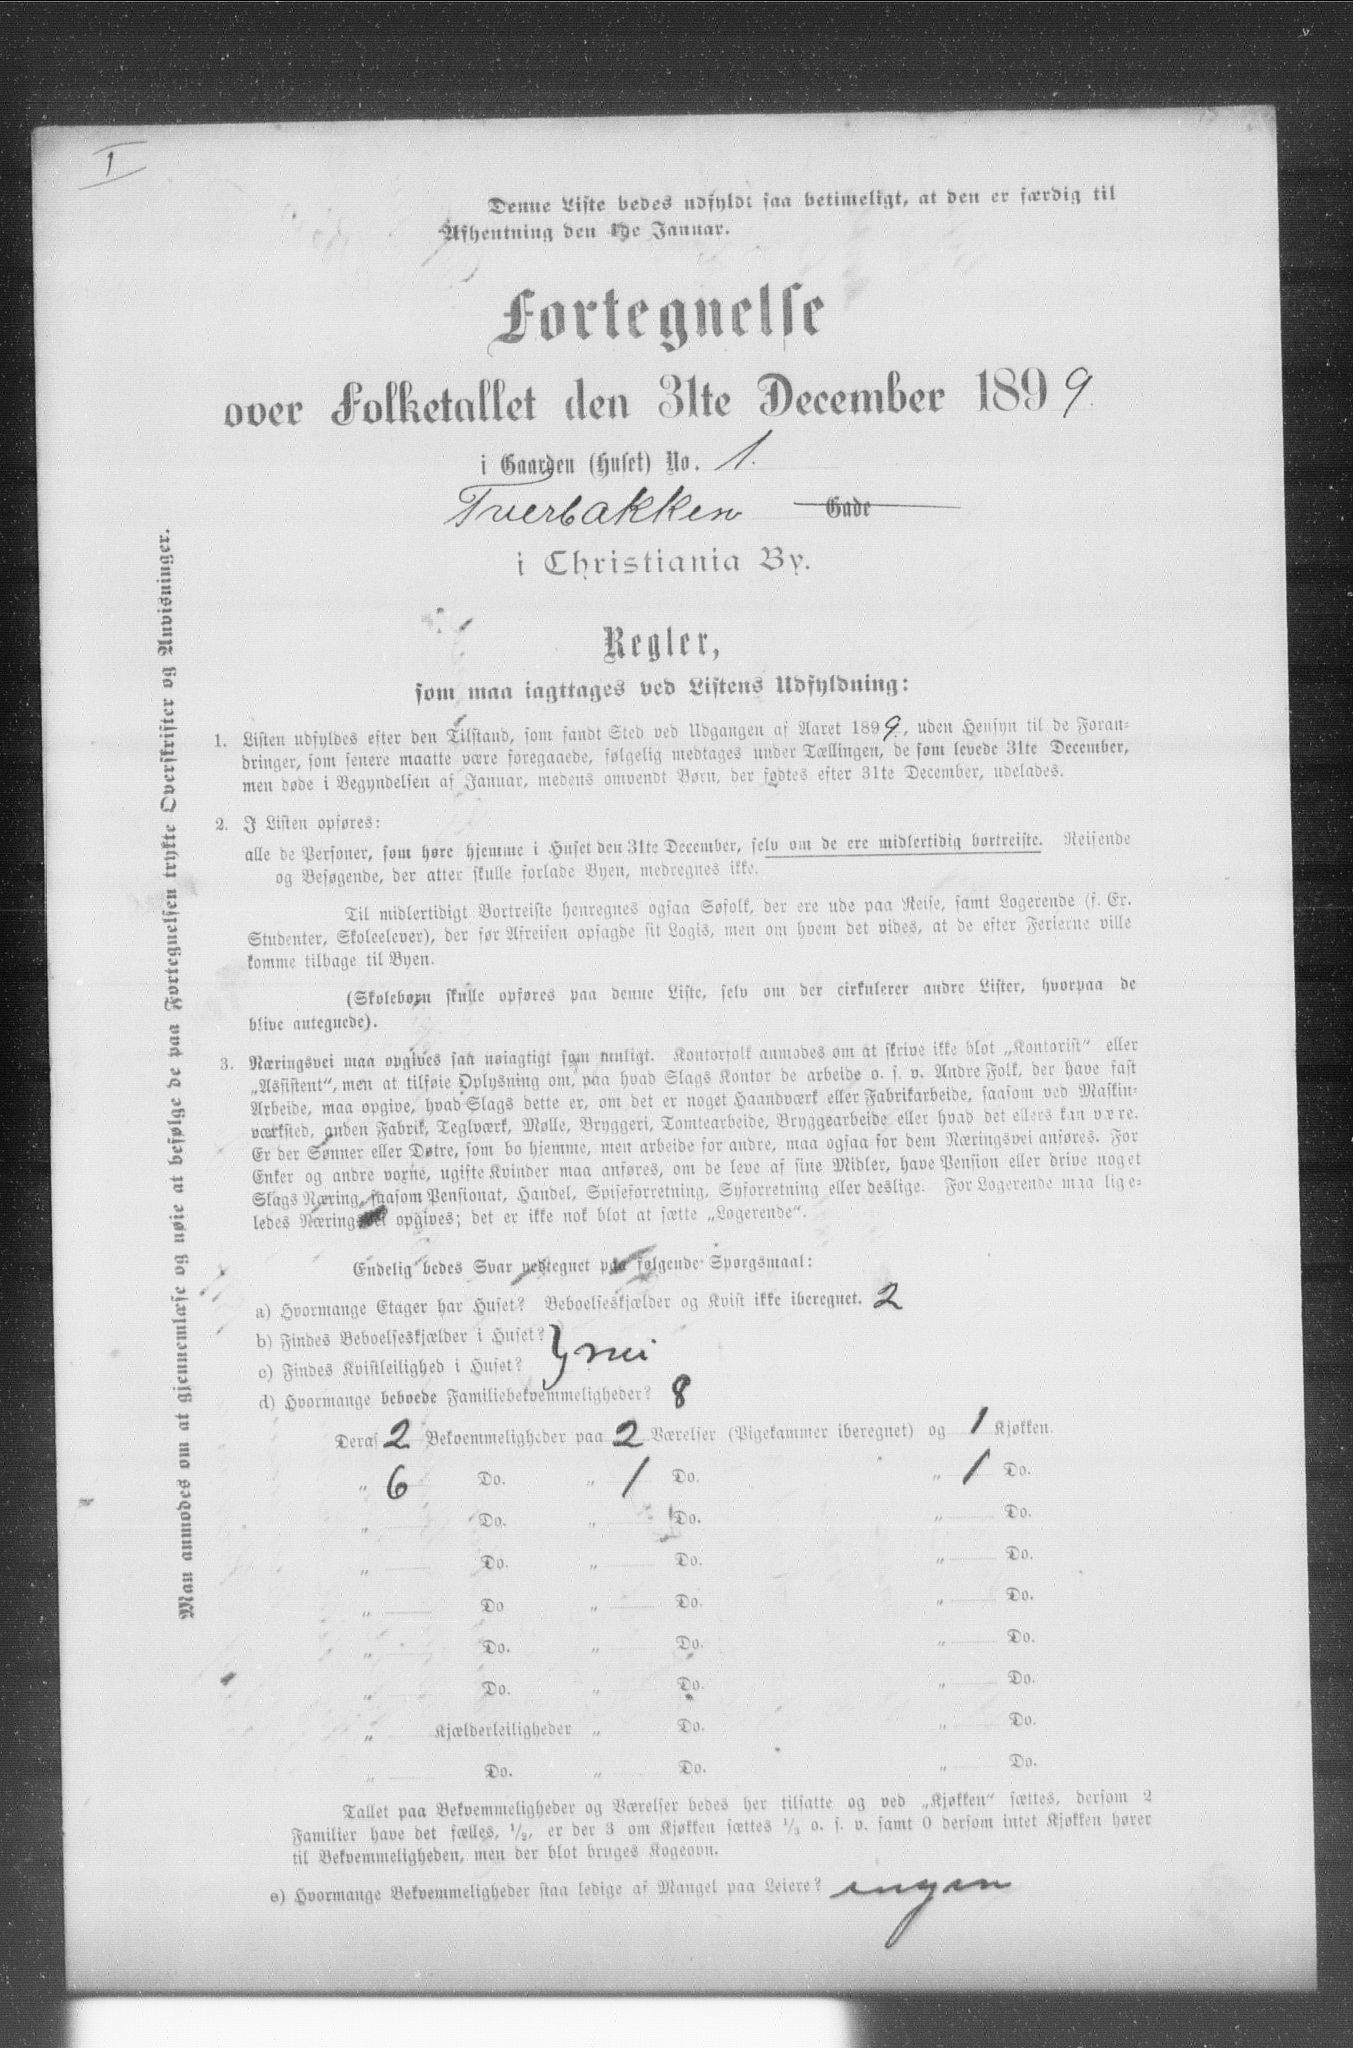 I
Denne Liste bedes udfyldt saa betimeligt, at den er færdig til
Afhentning den 1ste Januar.
Fortegnelse
over Folketallet den 31te December 1899.
i Gaarden (Huset) No. 1.
Tverbakken Gade
i Christiania By.
Regler,
som maa iagttages ved Listens Udfyldning:
1. Listen udfyldes efter den Tilstand, som fandt Sted ved Udgangen af Aaret 1899, uden Hensyn til de Foran-
dringer, som senere maatte være foregaaede, følgelig medtages under Tællingen, de som levede 31te December,
men døde i Begyndelsen af Januar, medens omvendt Børn, der fødtes efter 31te December, udelades.
2. I Listen opføres:
alle de Personer, som høre hjemme i Huset den 31te December, selv om de ere midlertidig bortreiste. Reisende
og Besøgende, der atter skulle forlade Byen, medregnes ikke.
Til midlertidigt Bortreiste henregnes ogsaa Søfolk, der ere ude paa Reise, samt Logerende (f. Ex.
Studenter, Skoleelever), der før Afreisen opsagde sit Logis, men om hvem det vides, at de efter Ferierne ville
komme tilbage til Byen.
(Skolebørn skulle opføres paa denne Liste, selv om der cirkulerer andre Lister, hvorpaa de
blive antegnede).
3. Næringsvei maa opgives saa nøiagtigt som muligt. Kontorfolk anmodes om at skrive ikke blot „Kontorist“ eller
„Assistent“, men at tilføie Oplysning om, paa hvad Slags Kontor de arbeide o. s. v. Andre Folk, der have fast
Arbeide, maa opgive, hvad Slags dette er, om det er noget Haandværk eller Fabrikarbeide, saasom ved Maskin-
værksted, anden Fabrik, Teglværk, Mølle, Bryggeri, Tomtearbeide, Bryggearbeide eller hvad det ellers kan være.
Er der Sønner eller Døtre, som bo hjemme, men arbeide for andre, maa ogsaa for dem Næringsvei anføres. For
Enker og andre voxne, ugifte Kvinder maa anføres, om de leve af sine Midler, have Pension eller drive noget
Slags Næring, saasom Pensionat, Handel, Spiseforretning, Syforretning eller deslige. For Logerende maa lige-
ledes Næringsvei opgives; det er ikke nok blot at sætte „Logerende“.
Endelig bedes Svar vedtegnet paa følgende Spørgsmaal:
a) Hvormange Etager har Huset? Beboelseskjælder og Kvist ikke iberegnet. 2
b) Findes Beboelseskjælder i Huset?
c) Findes Kvistleilighed i Huset? } nei
d) Hvormange beboede Familiebekvemmeligheder? 8
Deraf 2 Bekvemmeligheder paa 2 Værelser (Pigekammer iberegnet) og 1 Kjøkken.
„ 6 Do. „ 1 Do. „ 1 Do.
„ Do. „ Do. „ Do.
„ Do. „ Do. „ Do.
„ Do „ Do. „ Do.
„ Do. „ Do. „ Do.
„ Do. „ Do. „ Do.
„ Kjælderleiligheder „ Do. „ Do.
„ Do. „ Do. „ Do.
Tallet paa Bekvemmeligheder og Værelser bedes her tilsatte og ved „Kjøkken“ sættes, dersom 2
Familier have det fælles, 1/2, er der 3 om Kjøkken sættes 1/3 o. s. v. samt 0 dersom intet Kjøkken hører
til Bekvemmeligheden, men der blot bruges Kogeovn.
e) Hvormange Bekvemmeligheder staa ledige af Mangel paa Leiere? ingen
Man anmodes om at gjennemlæse og nøie at befølge de paa Fortegnelsen trykte Overskrifter og Anvisninger.